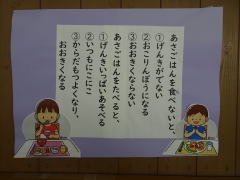 あさごはんを食べないと、
①げんきがでない
②おこりんぼうになる
③おおきくならない
あさごはんをたべると、
①げんきいっぱいあそべる
②いつもにこにこ
③からだもつよくなり、
おおきくなる